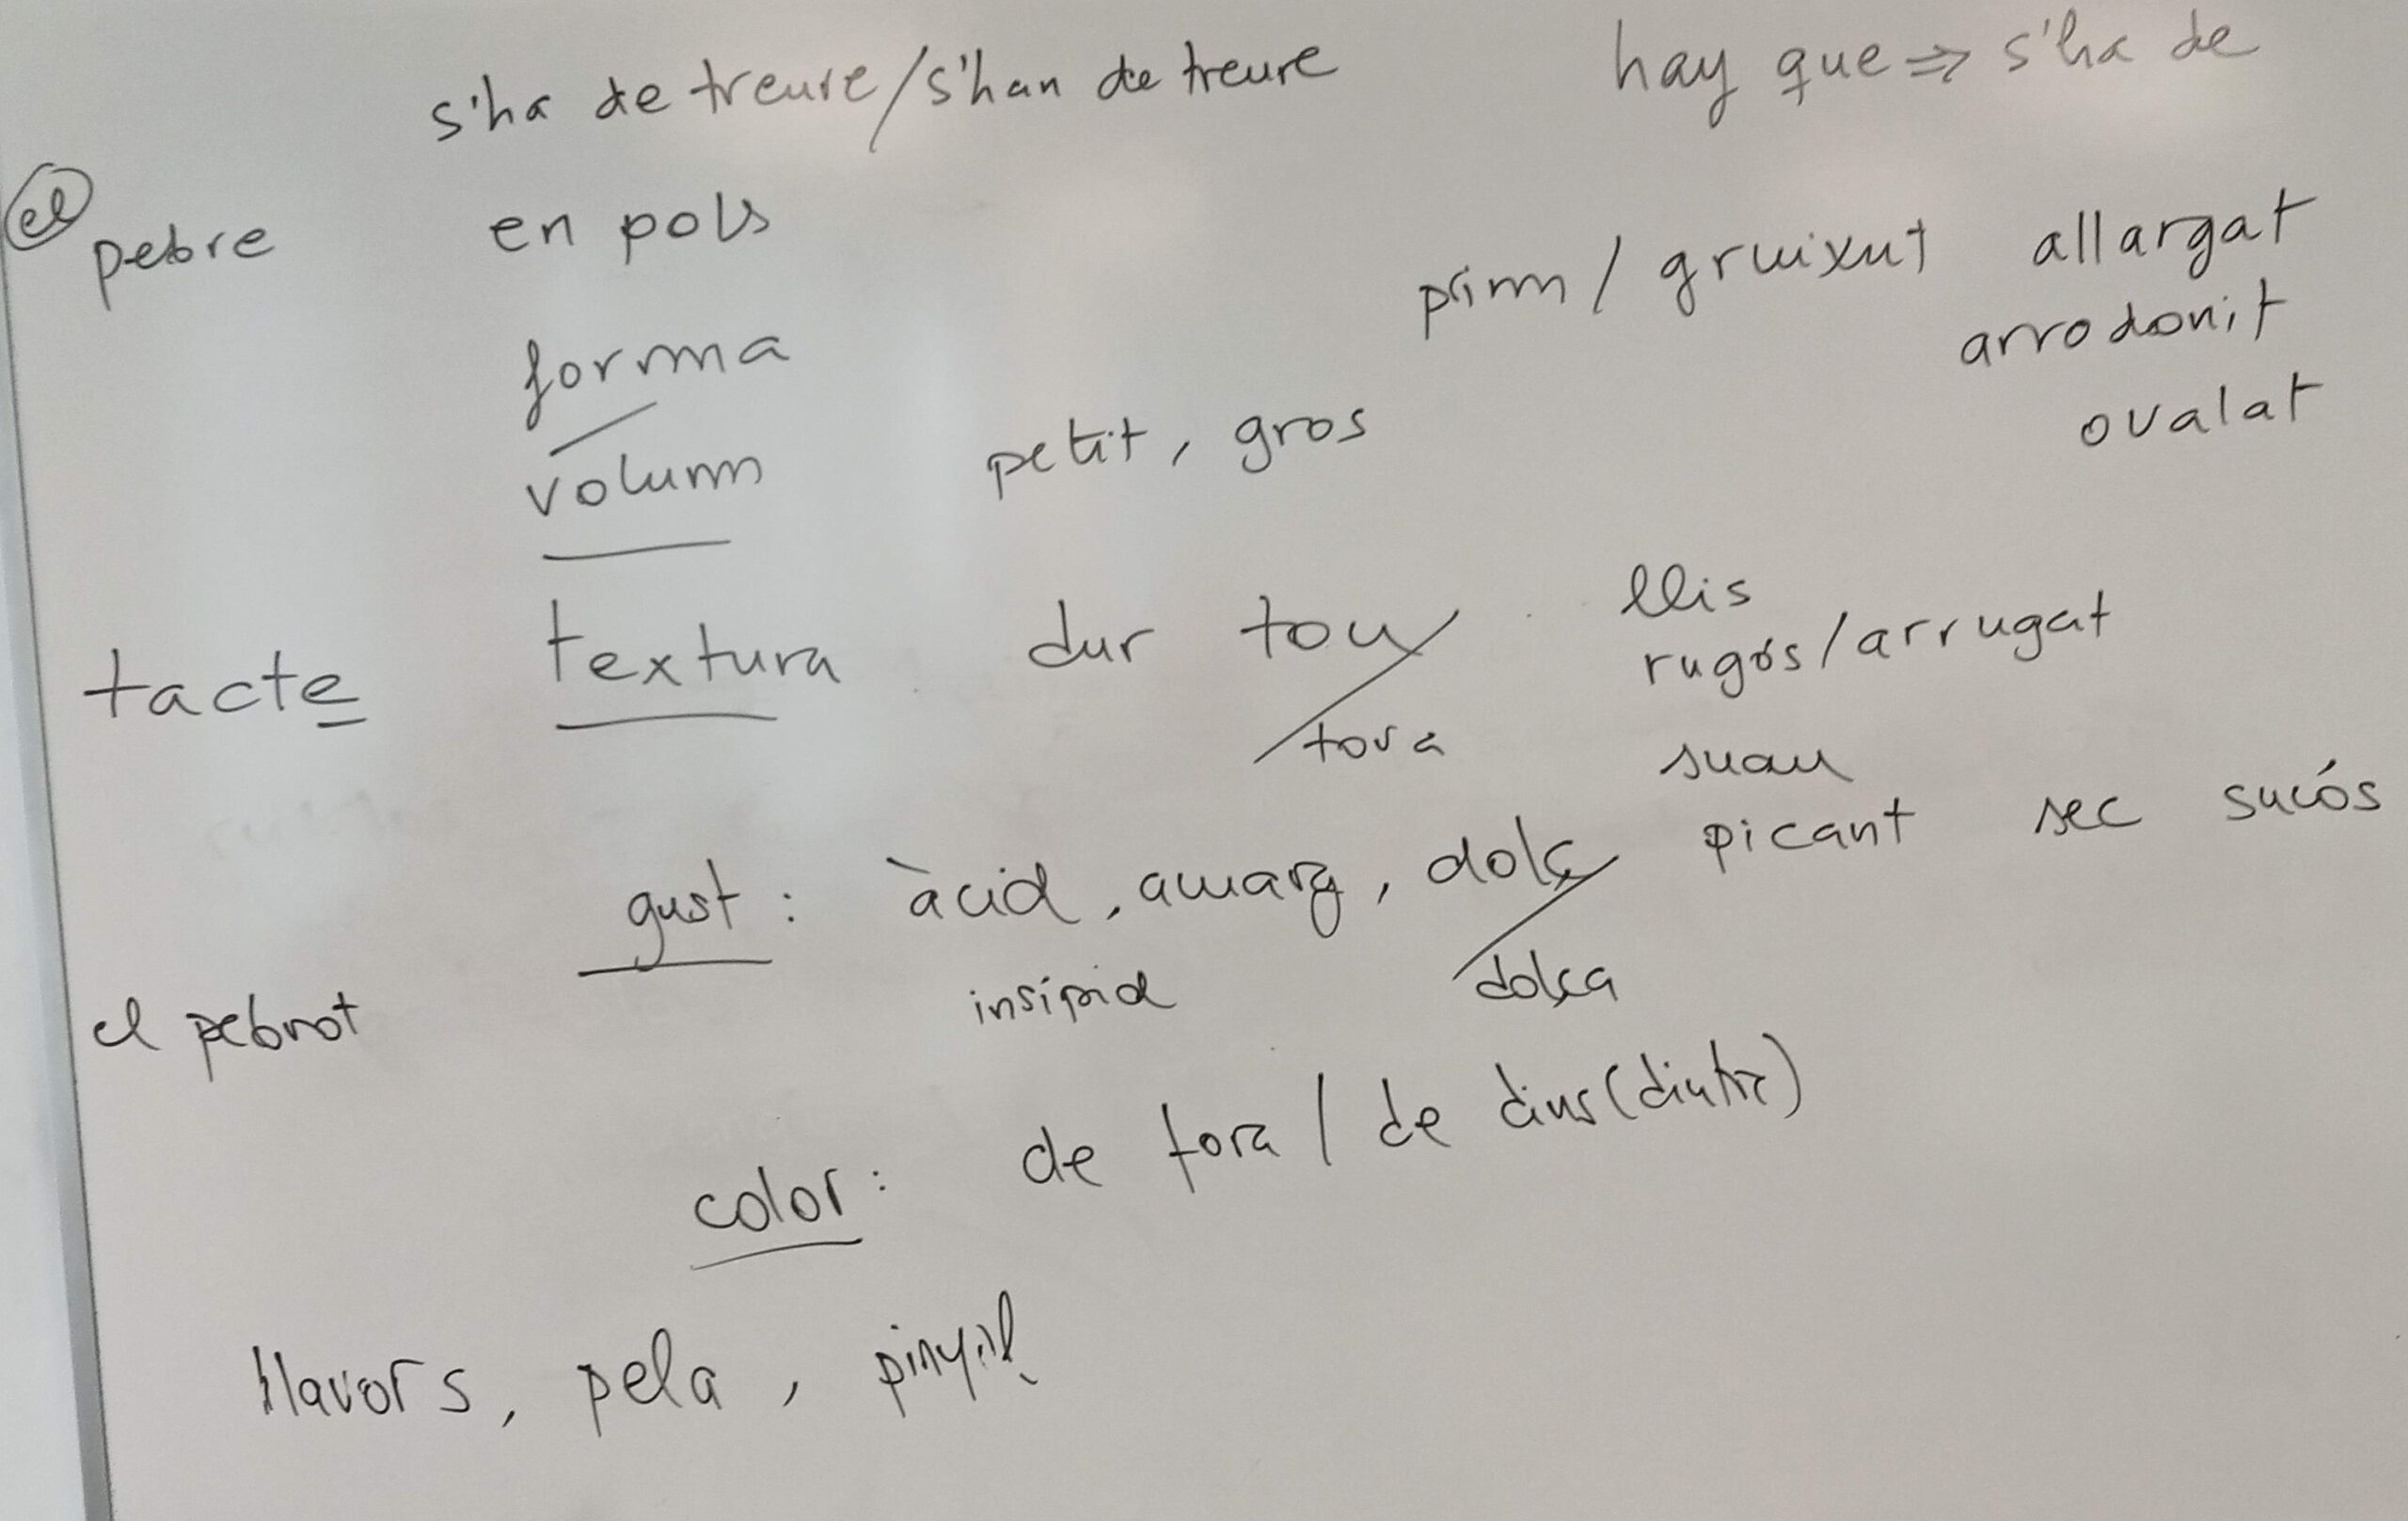 s'ha de treure/s'han de treure hay que ⇒ s'ha de
el pebre en pols
prim / gruixut allargat
forma arrodonit
volum petit, gros ovalat
tacte textura dur tou llis
rugós/arrugat
tova suau
gust: àcid, amarg, dolç picant sec sucós
el pebrot insípid dolça
color: de fora / de dins (dintre)
llavors, pela, pinyol